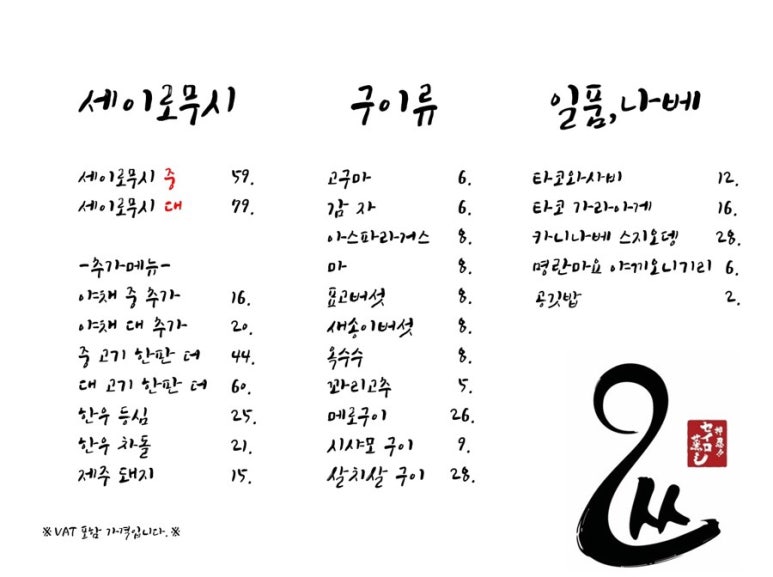 세이로무시
세이로무시 중 59.
세이로무시 대 79.
-추가메뉴-
야채 중 추가 16.
야채 대 추가 20.
중 고기 한판 더 44.
대 고기 한판 더 60.
한우 등심 25.
한우 차돌 21.
제주 돼지 15.
※VAT 포함 가격입니다.※
구이류
고구마 6.
감 자 6.
아스파라거스 8.
마 8.
표고버섯 8.
새송이버섯 8.
옥수수 8.
꽈리고추 5.
메로구이 26.
시샤모 구이 9.
살치살 구이 28.
일품,나베
타코와사비 12.
타코 가라아게 16.
카니나베 스지오뎅 28.
명란마요 야끼오니기리 6.
공깃밥 2.
セイロ
蒸し